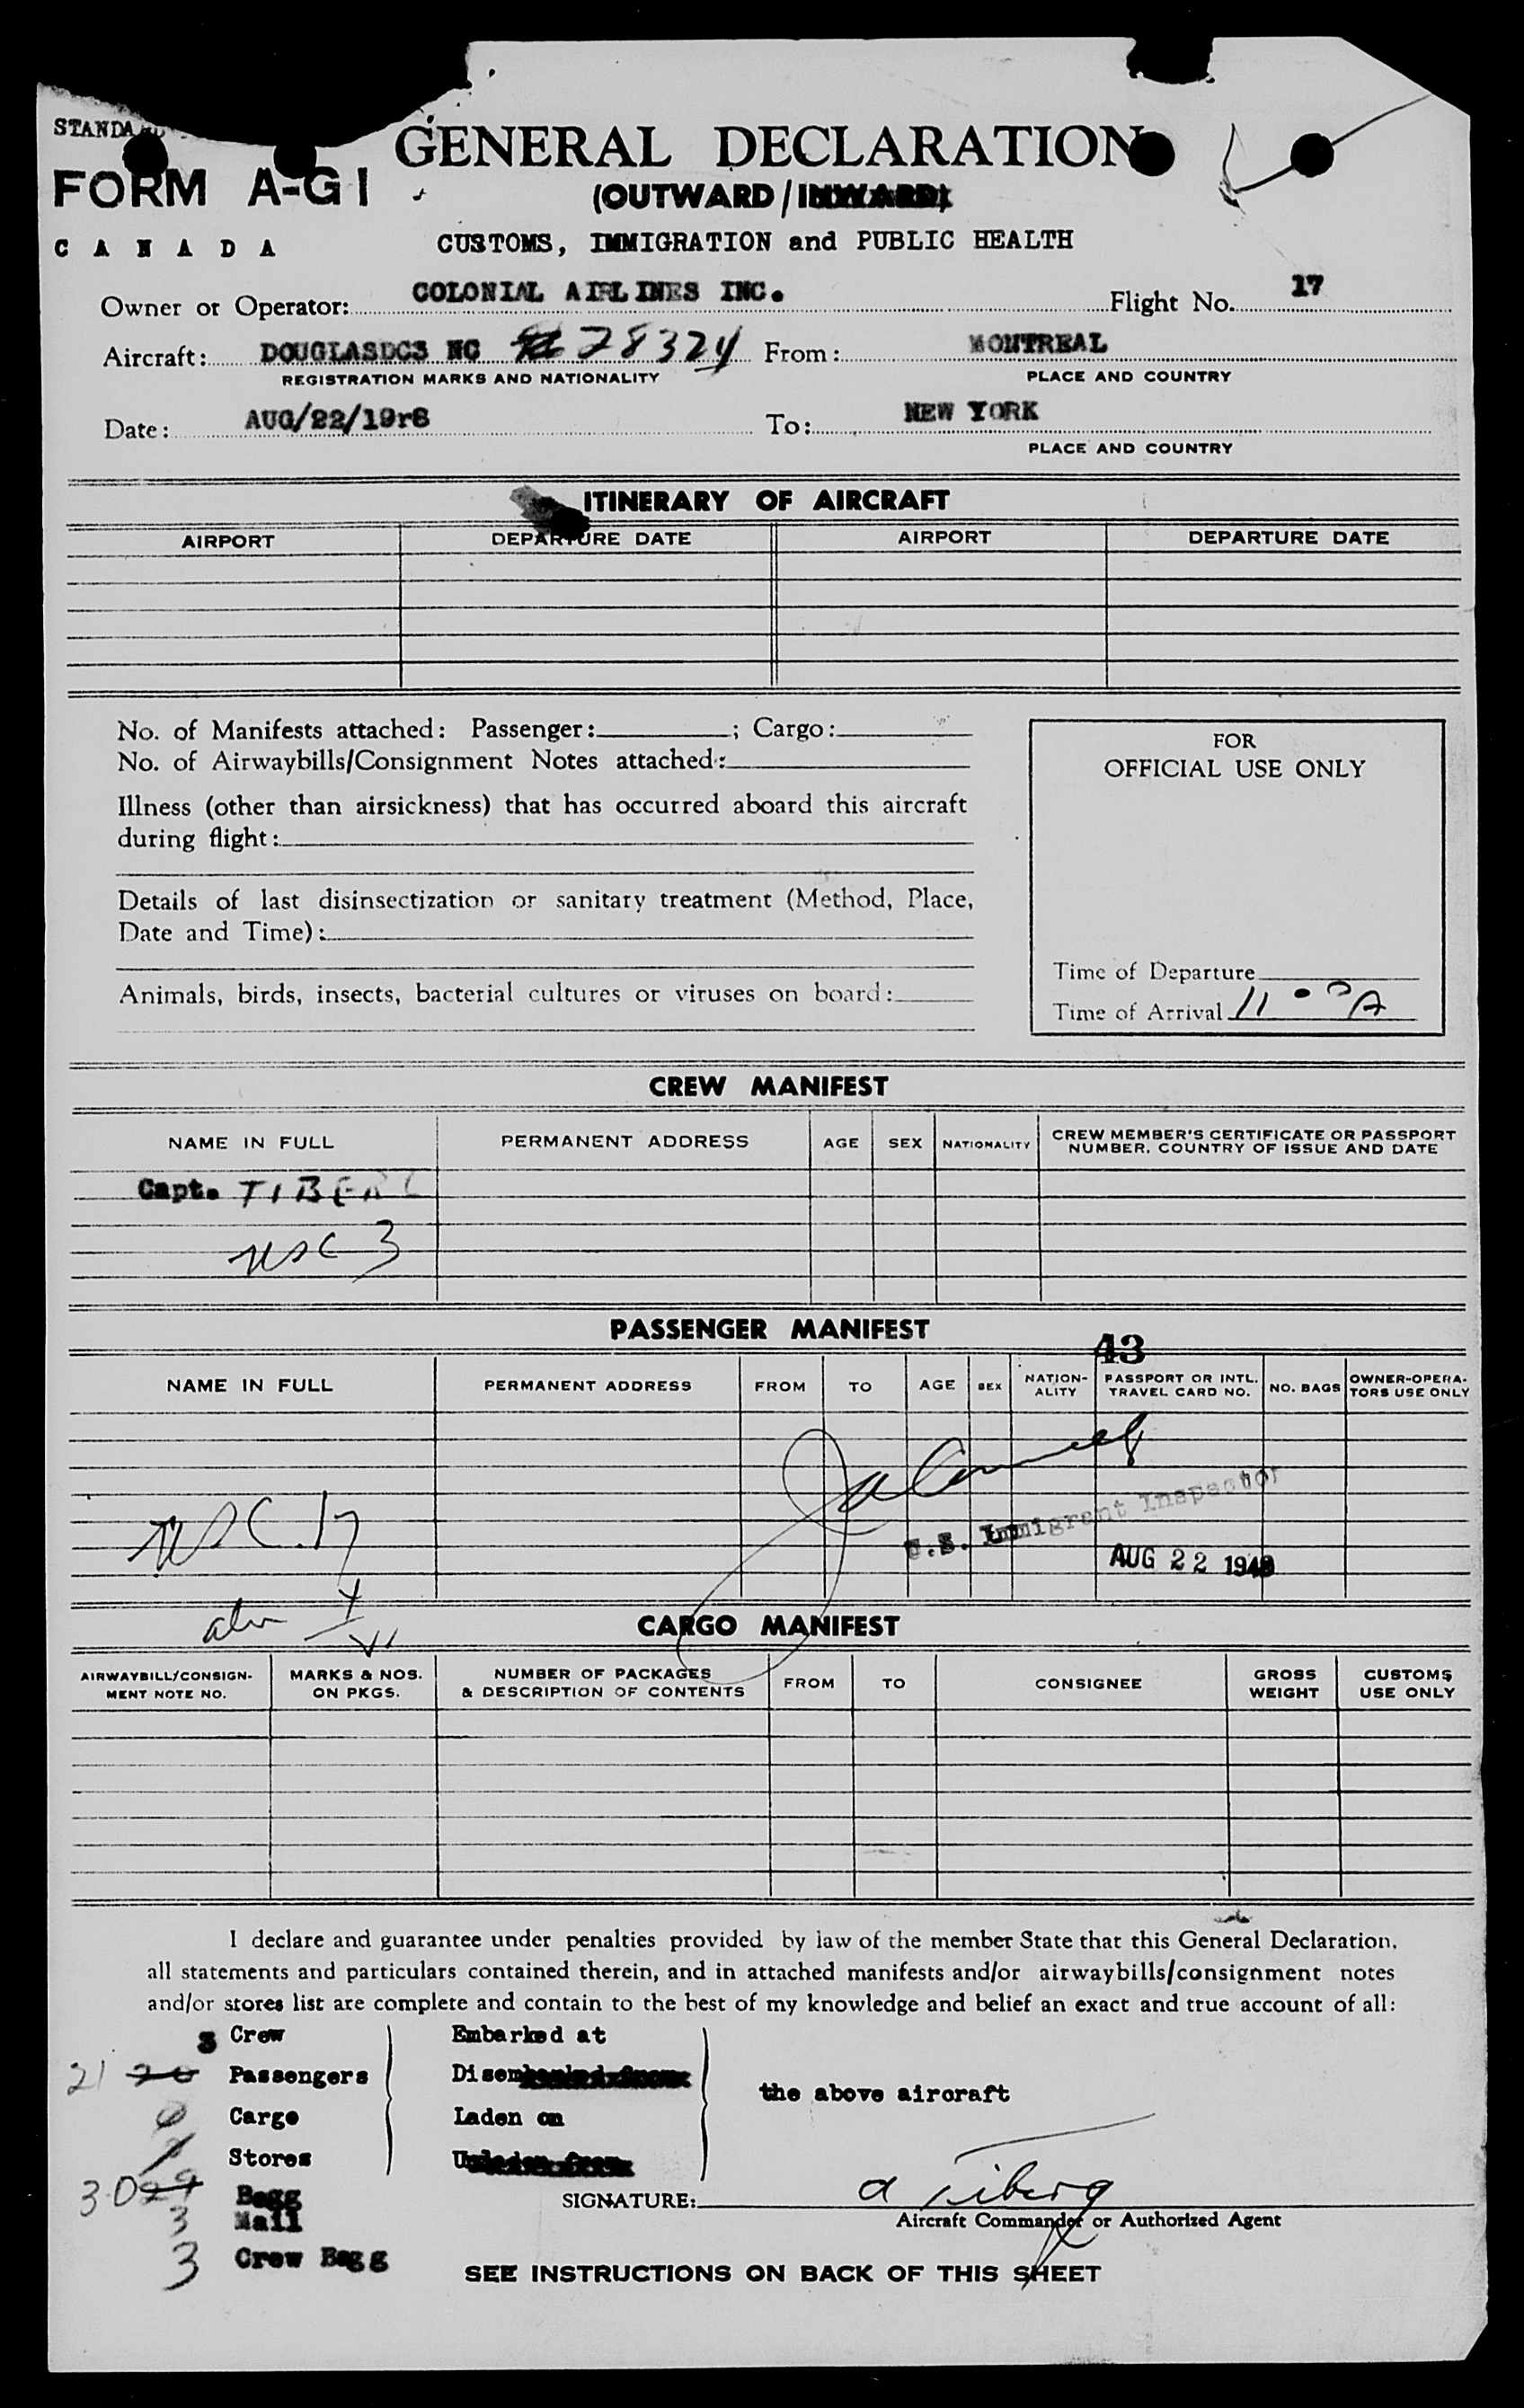 GENERAL DECLARATION
FORM A-G1
(OUTWARD/INWARD)
CANADA
CUSTOMS, IMMIGRATION and PUBLIC HEALTH
Owner or Operator: COLONIAL AIRLINES INC. Flight No. 17
Aircraft: DOUGLASDC3 NC 28324 From: MONTREAL
REGISTRATION MARKS AND NATIONALITY PLACE AND COUNTRY
Date: AUG/22/19r8 To: NEW YORK
PLACE AND COUNTRY
ITINERARY OF AIRCRAFT
AIRPORT DEPARTURE DATE AIRPORT DEPARTURE DATE
No. of Manifests attached: Passenger: ; Cargo:
No. of Airwaybills/Consignment Notes attached:
Illness (other than airsickness) that has occurred aboard this aircraft
during flight:
Details of last disinsectization or sanitary treatment (Method, Place,
Date and Time):
Animals, birds, insects, bacterial cultures or viruses on board:
FOR
OFFICIAL USE ONLY
Time of Departure
Time of Arrival 11 00 A
CREW MANIFEST
NAME IN FULL PERMANENT ADDRESS AGE SEX NATIONALITY CREW MEMBER'S CERTIFICATE OR PASSPORT
NUMBER, COUNTRY OF ISSUE AND DATE
Capt. TIBERG
USC 3
PASSENGER MANIFEST
43
NAME IN FULL PERMANENT ADDRESS FROM TO AGE SEX NATION-
ALITY PASSPORT OR INTL.
TRAVEL CARD NO. NO. BAGS OWNER-OPERA-
TORS USE ONLY
U.S. Immigrant Inspector
USC. 17
AUG 22 1948
CARGO MANIFEST
AIRWAYBILL/CONSIGN-
MENT NOTE NO. MARKS & NOS.
ON PKGS. NUMBER OF PACKAGES
& DESCRIPTION OF CONTENTS FROM TO CONSIGNEE GROSS
WEIGHT CUSTOMS
USE ONLY
I declare and guarantee under penalties provided by law of the member State that this General Declaration,
all statements and particulars contained therein, and in attached manifests and/or airwaybills/consignment notes
and/or stores list are complete and contain to the best of my knowledge and belief an exact and true account of all:
3 Crew Embarked at
21 20 Passengers
the above aircraft
Cargo Laden on
Stores
30 Bagg
3 Mail
SIGNATURE: A Tiberg
Aircraft Commander or Authorized Agent
3 Crew Bagg
SEE INSTRUCTIONS ON BACK OF THIS SHEET